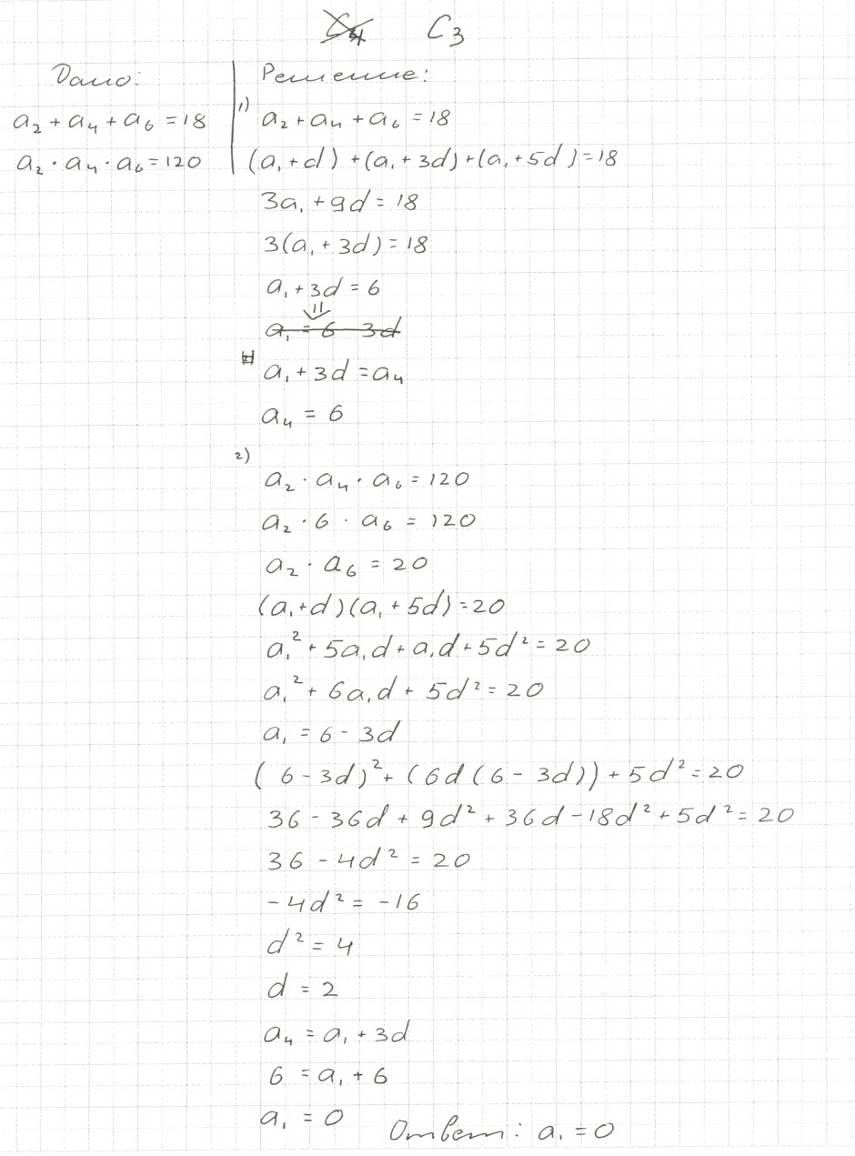 C4 C3
Дано:
a₂ + a₄ + a₆ = 18
a₂ · a₄ · a₆ = 120
Решение:
1)
a₂ + a₄ + a₆ = 18
(a₁ + d) + (a₁ + 3d) + (a₁ + 5d) = 18
3a₁ + 9d = 18
3(a₁ + 3d) = 18
a₁ + 3d = 6
⇓
a₁ = 6 - 3d
a₁ + 3d = a₄
a₄ = 6
2)
a₂ · a₄ · a₆ = 120
a₂ · 6 · a₆ = 120
a₂ · a₆ = 20
(a₁ + d)(a₁ + 5d) = 20
a₁² + 5a₁d + a₁d + 5d² = 20
a₁² + 6a₁d + 5d² = 20
a₁ = 6 - 3d
(6 - 3d)² + (6d(6 - 3d)) + 5d² = 20
36 - 36d + 9d² + 36d - 18d² + 5d² = 20
36 - 4d² = 20
-4d² = -16
d² = 4
d = 2
a₄ = a₁ + 3d
6 = a₁ + 6
a₁ = 0
Ответ: a₁ = 0